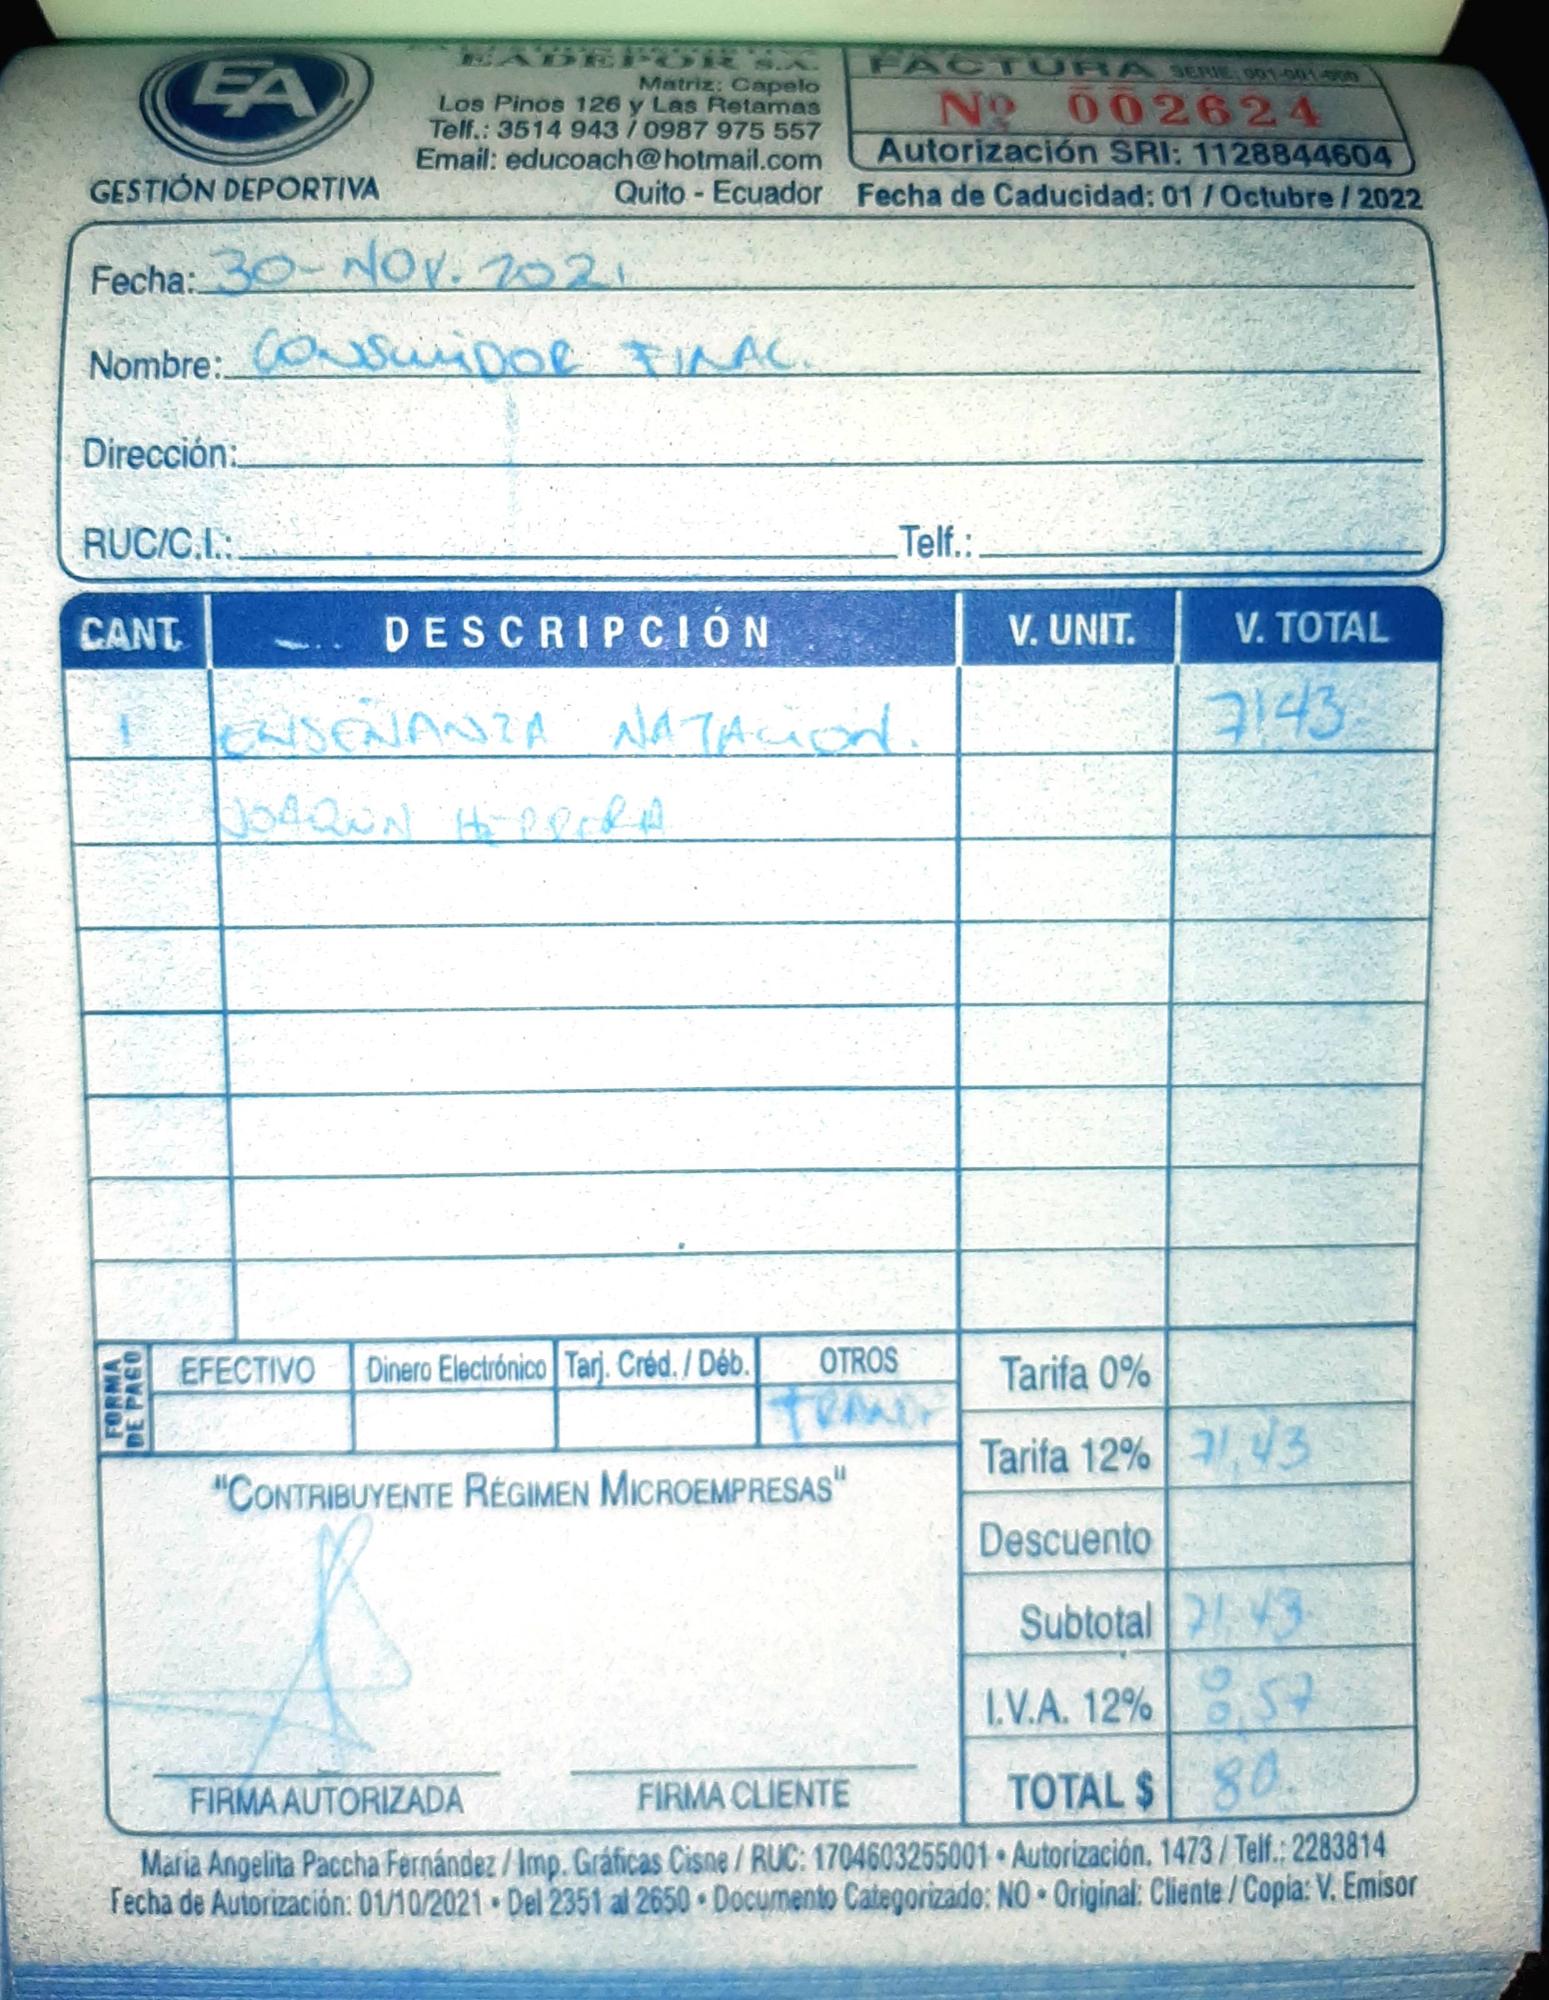 EA
GESTIÓN DEPORTIVA
EADEPOR S.A.
Matriz: Capelo
Los Pinos 126 y Las Retamas
Telf.: 3514 943 / 0987 975 557
Email: educoach@hotmail.com
Quito - Ecuador
FACTURA SERIE: 001-001-000
Nº 002624
Autorización SRI: 1128844604
Fecha de Caducidad: 01 / Octubre / 2022
Fecha: 30-NOV. 2021
Nombre: CONSUMIDOR FINAL.
Dirección:
RUC/C.I.: Telf.:
CANT. DESCRIPCIÓN V. UNIT. V. TOTAL
1 ENSEÑANZA NATACION. 71.43
JOAQUIN HERRERA
FORMA DE PAGO
EFECTIVO Dinero Electrónico Tarj. Créd. / Déb. OTROS
Tarifa 0%
Tarifa 12% 71,43
Descuento
Subtotal 71,43
I.V.A. 12% 8,57
TOTAL $ 80.
"CONTRIBUYENTE RÉGIMEN MICROEMPRESAS"
FIRMA AUTORIZADA FIRMA CLIENTE
María Angelita Paccha Fernández / Imp. Gráficas Cisne / RUC: 1704603255001 • Autorización. 1473 / Telf.: 2283814
Fecha de Autorización: 01/10/2021 • Del 2351 al 2650 • Documento Categorizado: NO • Original: Cliente / Copia: V. Emisor